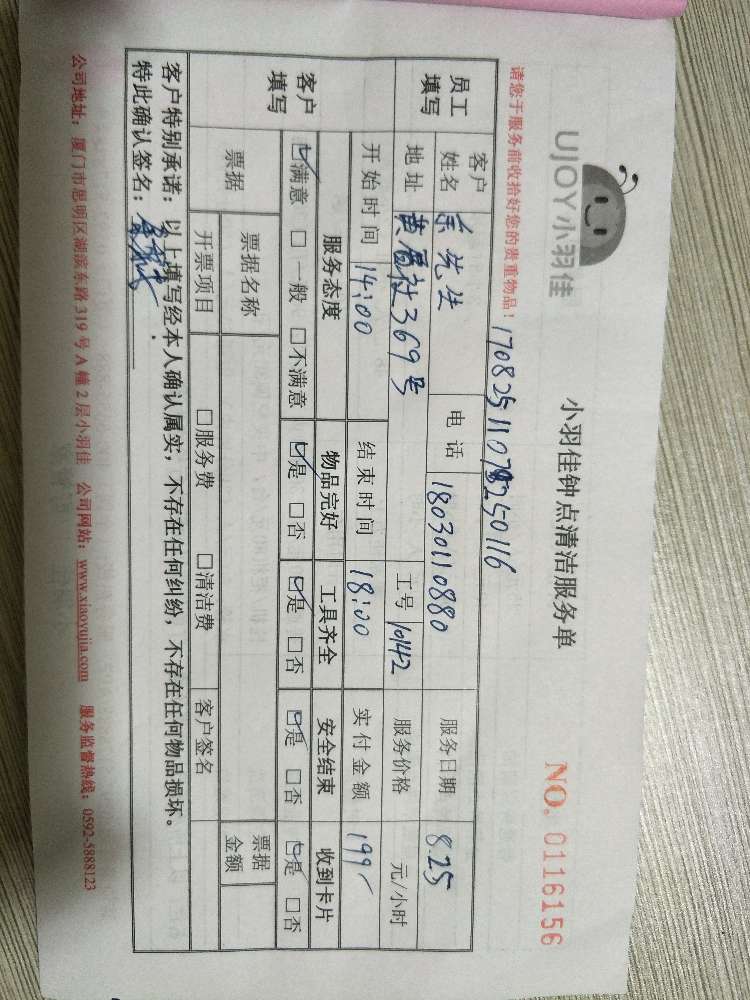 UJOY小羽佳
小羽佳钟点清洁服务单
NO. 0116156
请您于服务前收拾好您的贵重物品！
员工填写 客户姓名 余先生 电话 18030110880 服务日期 8.25
地址 369号 工号 10142 服务价格 元/小时
开始时间 14:00 结束时间 18:00 实付金额 199
客户填写 服务态度 物品完好 工具齐全 安全结束 收到卡片
☑满意 □一般 □不满意 ☑是 □否 ☑是 □否 ☑是 □否 ☑是 □否
票据 票据名称 票据金额
开票项目 □服务费 □清洁费 客户签名
客户特别承诺：以上填写经本人确认属实，不存在任何纠纷，不存在任何物品损坏。
特此确认签名：
公司地址：厦门市思明区湖滨东路319号A幢2层小羽佳 公司网站：www.xiaoyujia.com 服务监督热线：0592-5888123